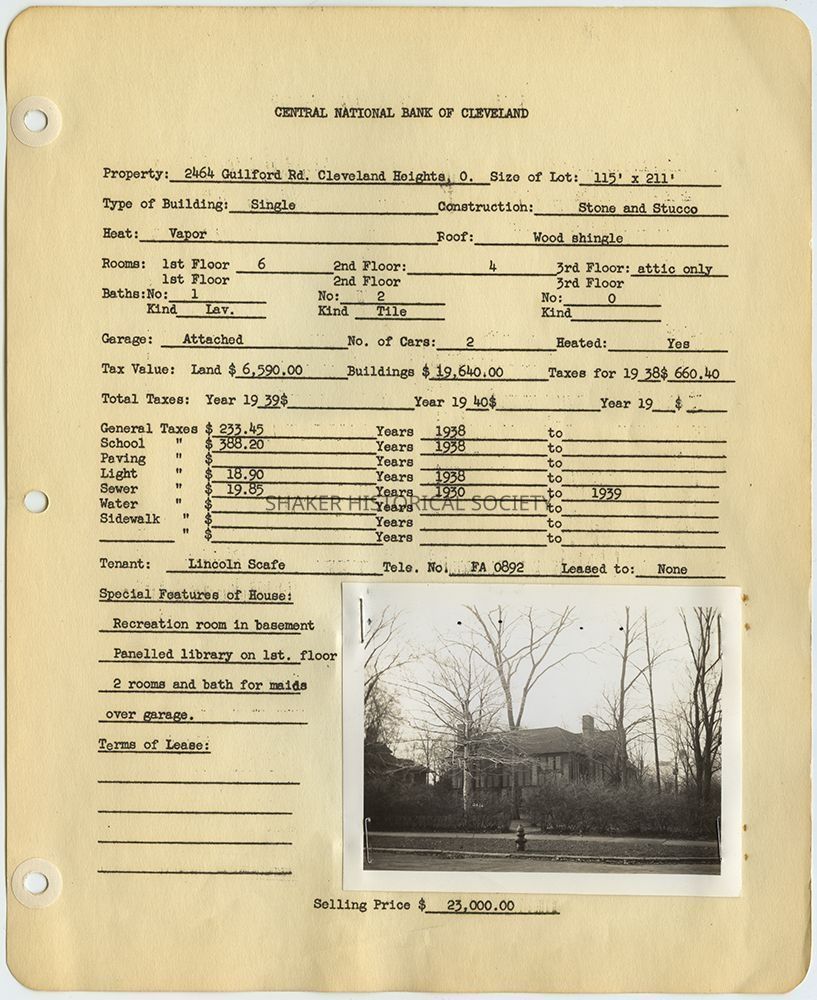 CENTRAL NATIONAL BANK OF CLEVELAND
Property: 2464 Guilford Rd. Cleveland Heights, O. Size of Lot: 115' x 211'
Type of Building: Single Construction: Stone and Stucco
Heat: Vapor Roof: Wood shingle
Rooms: 1st Floor 6 2nd Floor: 4 3rd Floor: attic only
1st Floor 2nd Floor 3rd Floor
Baths:No: 1 No: 2 No: 0
Kind Lav. Kind Tile Kind
Garage: Attached No. of Cars: 2 Heated: Yes
Tax Value: Land $ 6,590.00 Buildings $ 19,640.00 Taxes for 19 38$ 660.40
Total Taxes: Year 19 39$ Year 19 40$ Year 19 $
General Taxes $ 233.45 Years 1938 to
School " $ 388.20 Years 1938 to
Paving " $ Years to
Light " $ 18.90 Years 1938 to
Sewer " $ 19.85 Years 1930 to 1939
SHAKER HISTORICAL SOCIETY
Water " $ Years to
Sidewalk " $ Years to
" $ Years to
Tenant: Lincoln Scafe Tele. No. FA 0892 Leased to: None
Special Features of House:
Recreation room in basement
Panelled library on 1st. floor
2 rooms and bath for maids
over garage.
Terms of Lease:
Selling Price $ 23,000.00